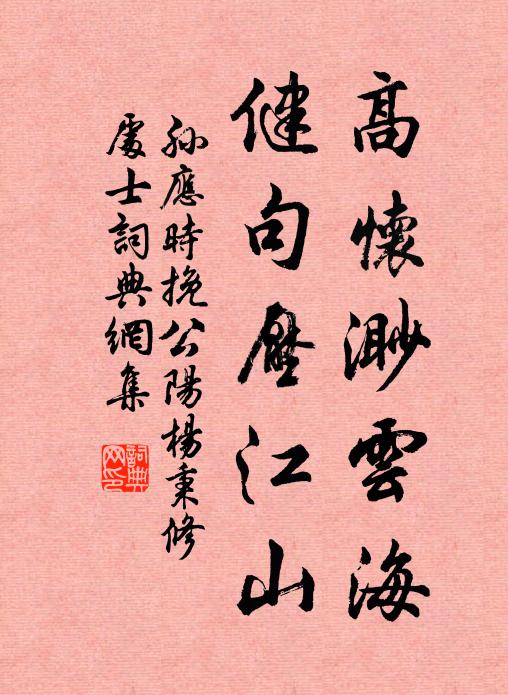 高懷渺雲海
健句壓江山
孫應時挽公陽楊秉修
處士詞典網集
詞典
网印